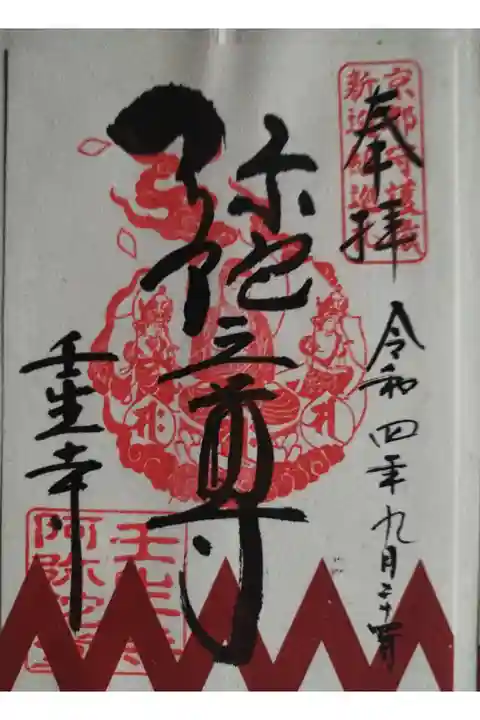 京都守護職
奉拝
令和四年九月二十四日
弥陀三尊
壬生寺
壬生寺
阿弥陀堂